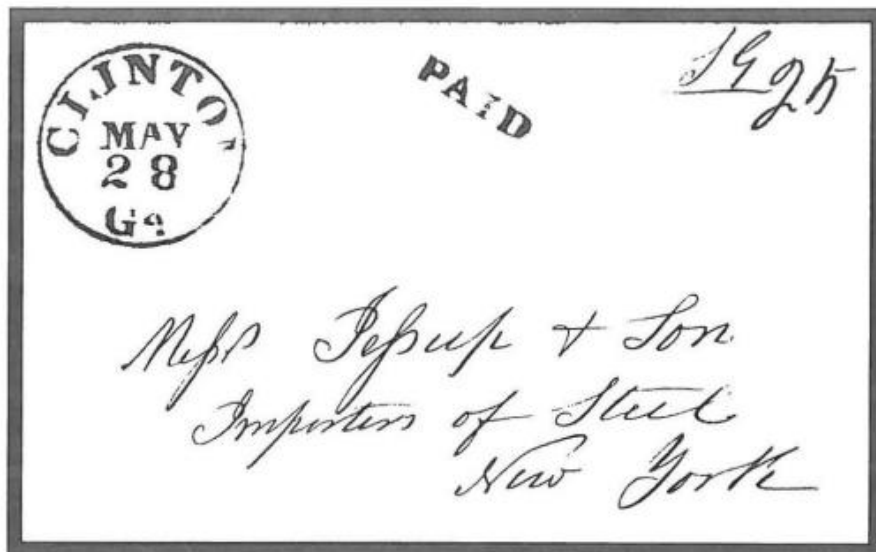 CLINTO
MAY
28
Ga
PAID
25
Messrs Jessup & Son
Importers of Steel
New York